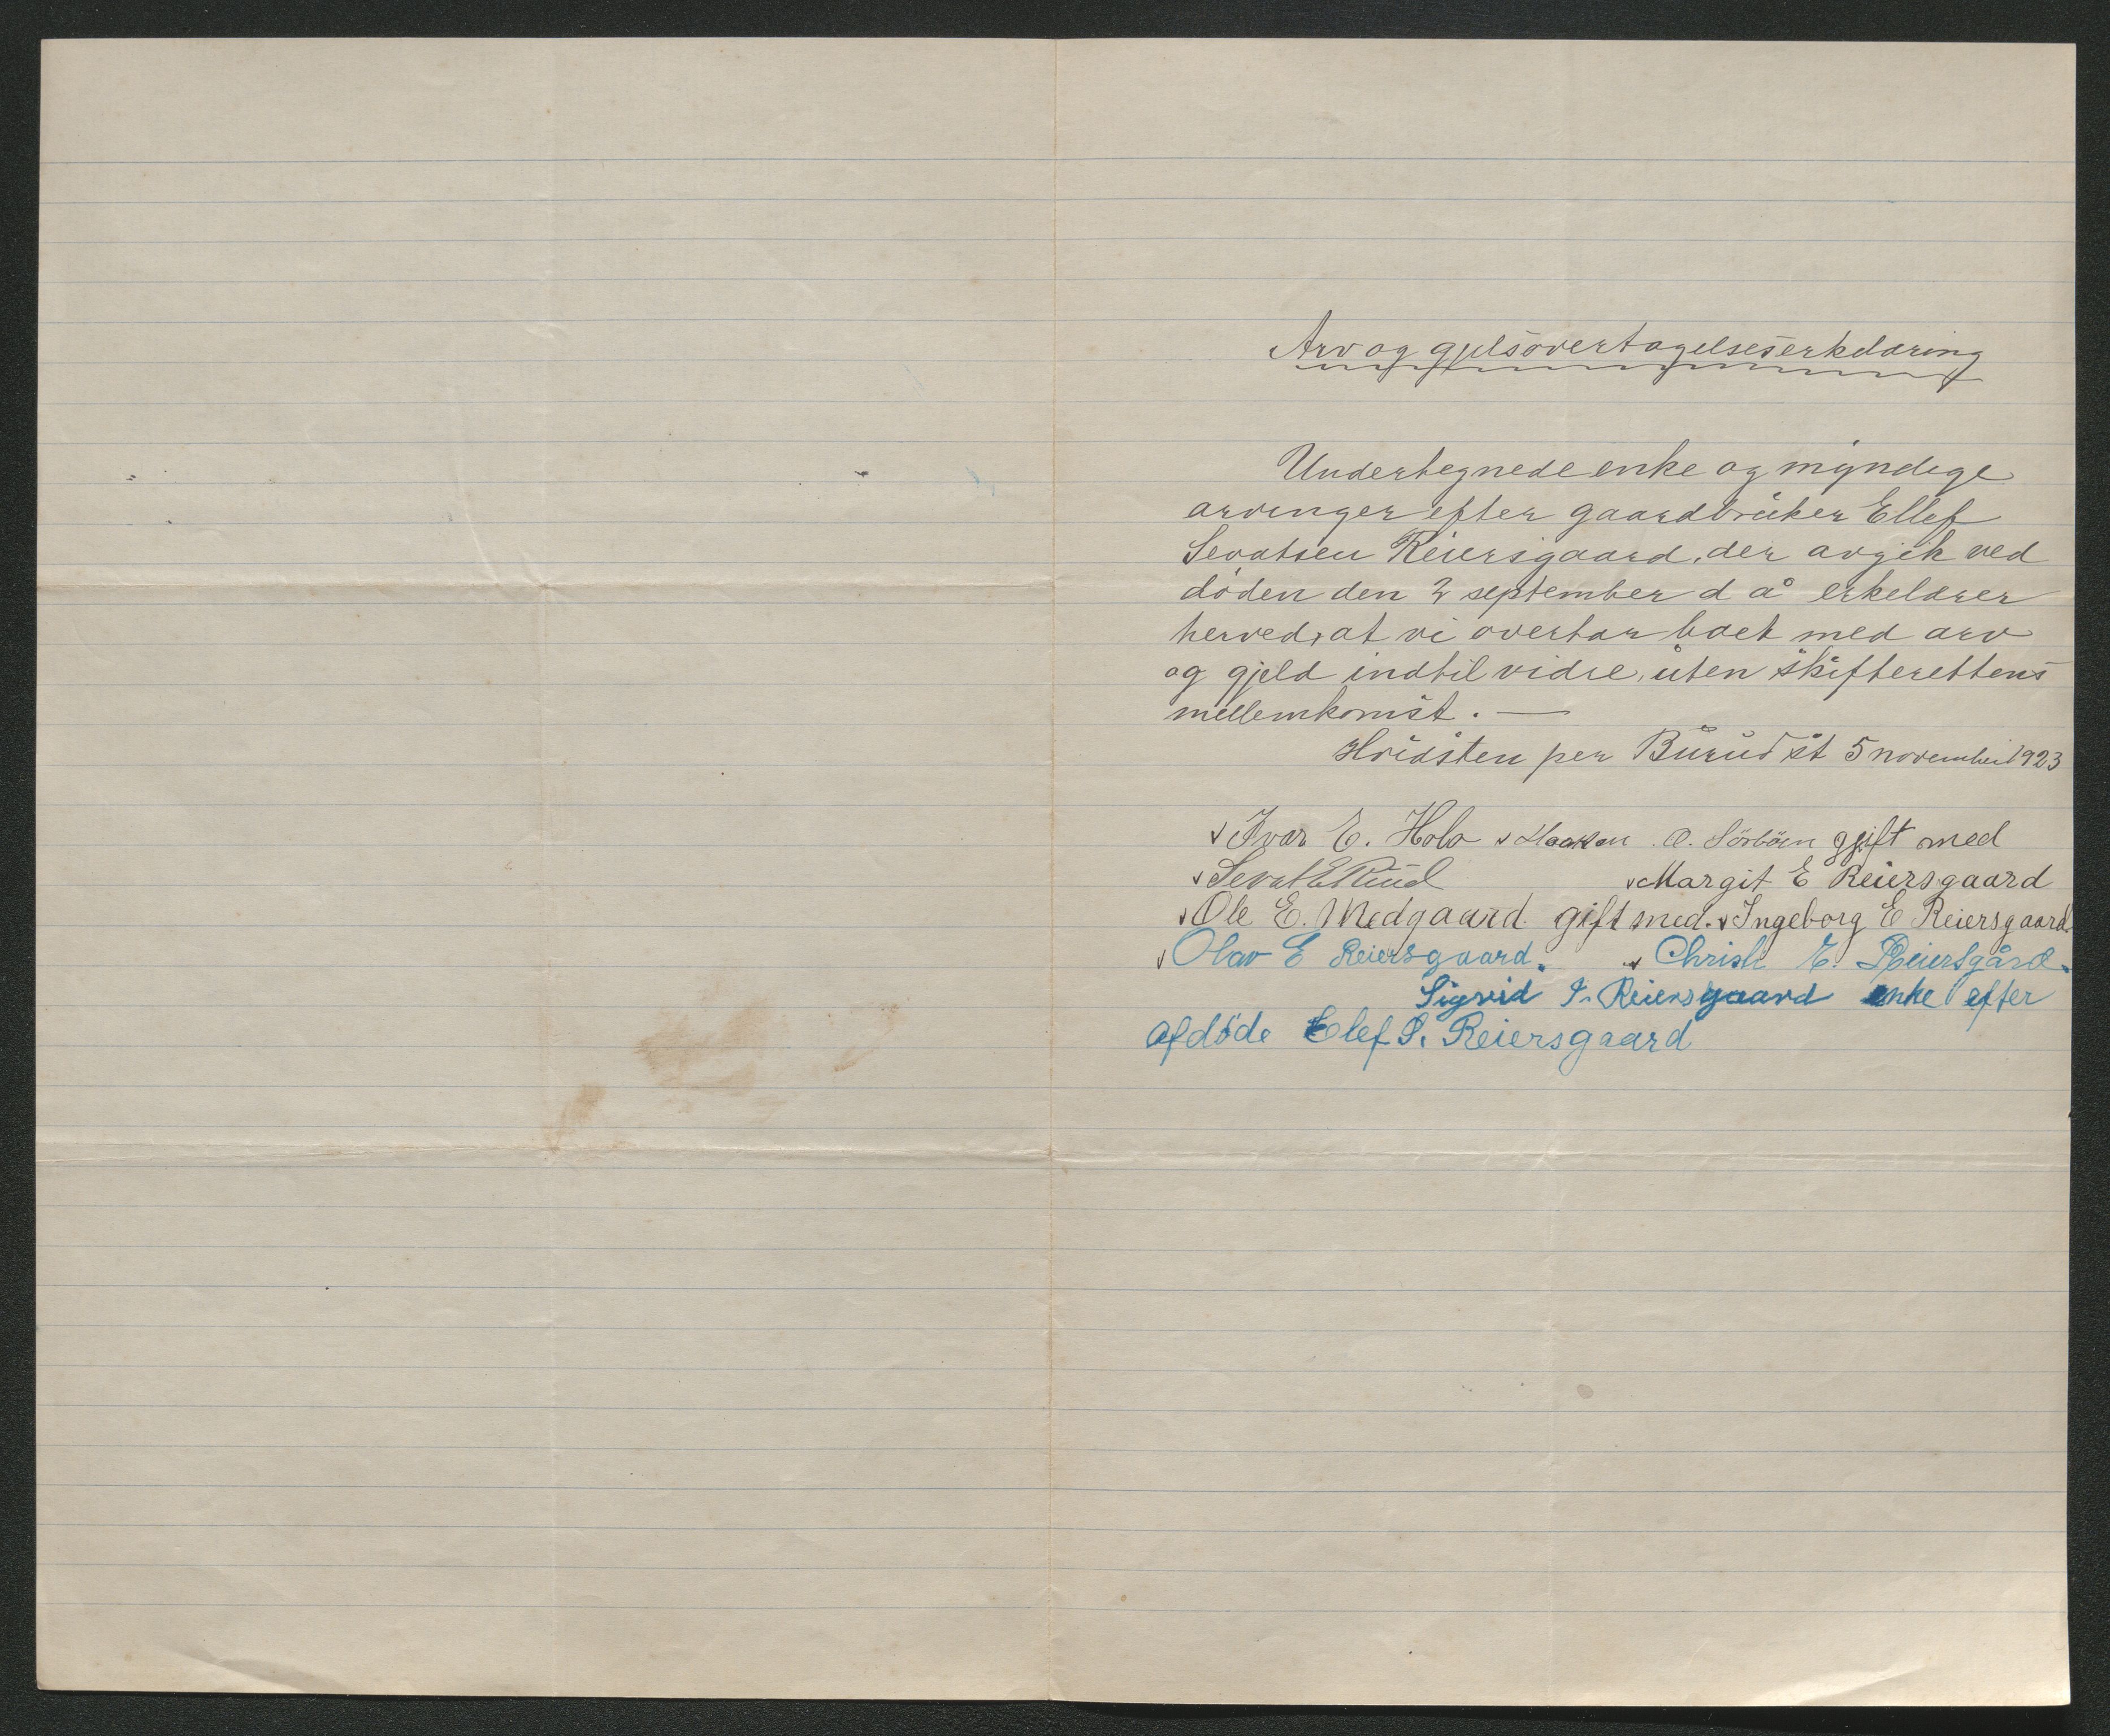 Arv og gjelsovertagelseserkelæring
Undertegnede enke og myndige
arvinger efter gaardbruker Ellef
Sevatsen Reiersgaard, der avgik ved
döden den 2 september d å erkelærer
herved, at vi overtar boet med arv
og gjeld indtil vidre, uten skifterettens
mellemkomst. —
Hvidsten per Burud st 5 november 1923
Ivar E. Holo Haakon O. Sörböen gift med
Sevat E Ruud Margit E Reiersgaard
Ole E. Medgaard gift med. Ingeborg E Reiersgaard.
Olav E Reiersgaard. Christi E. Reiersgård.
Sigrid I. Reiersgaard enke efter
afdöde Elef S. Reiersgaard